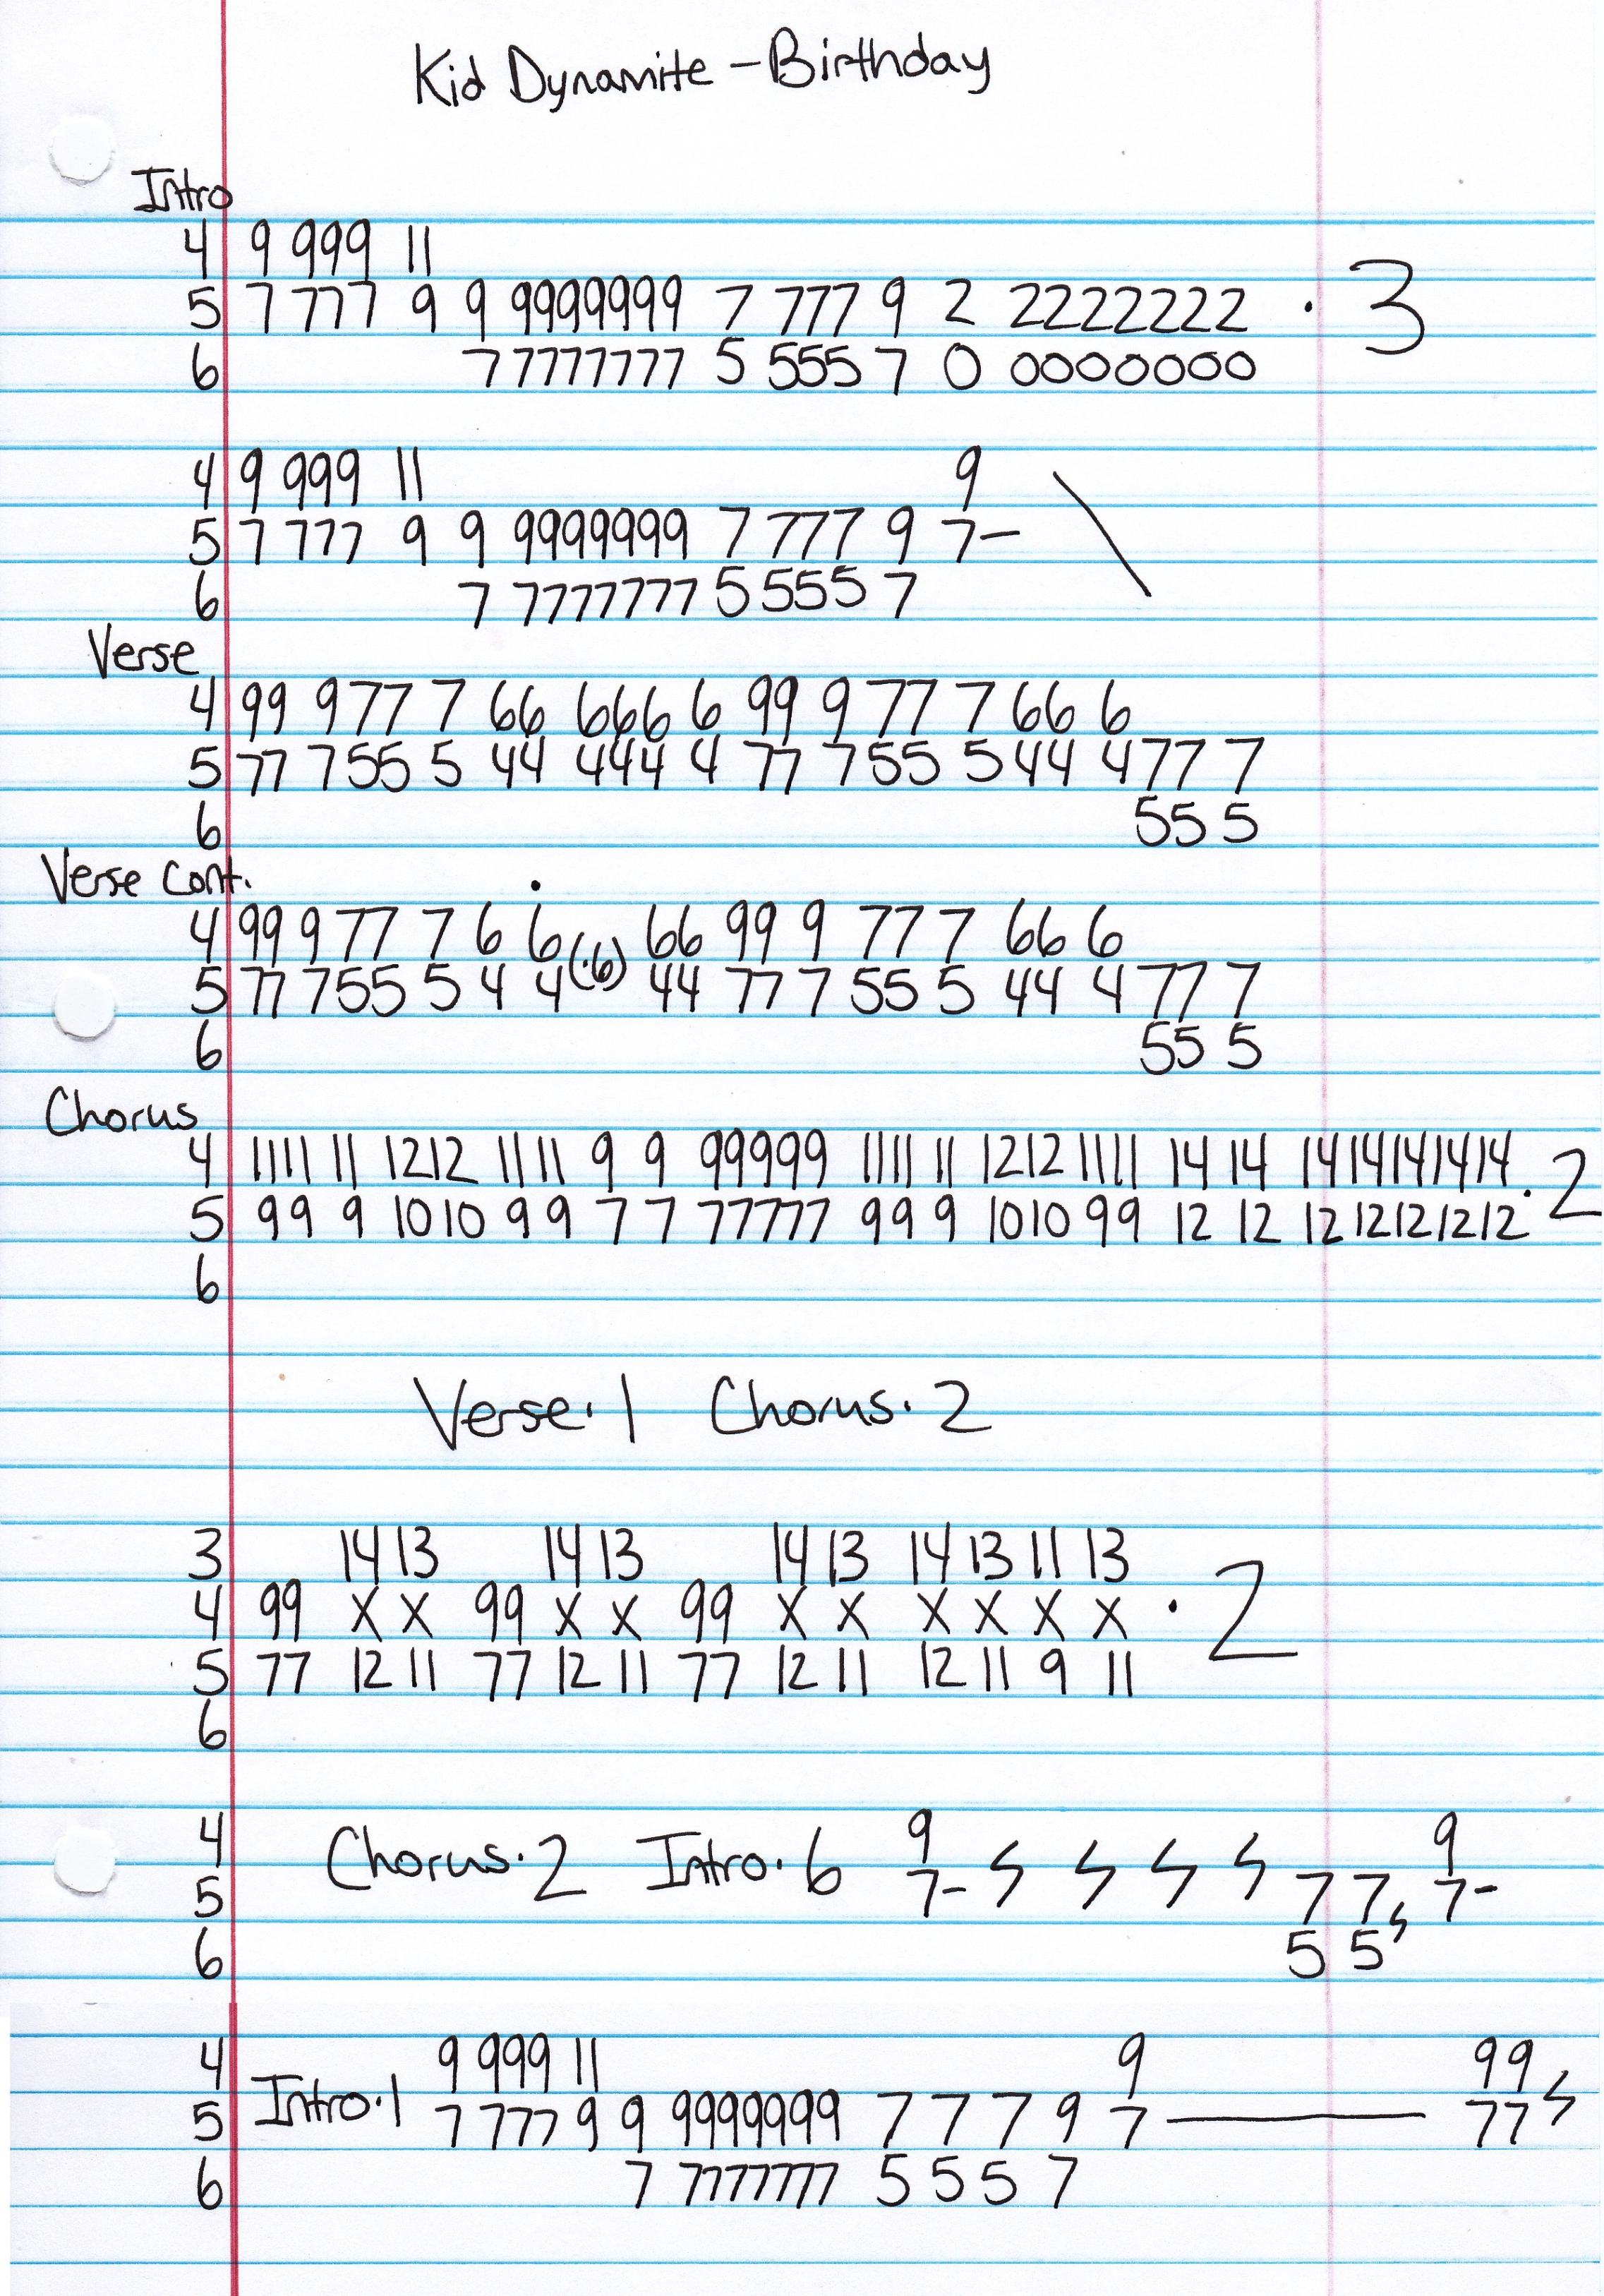 Kid Dynamite - Birthday
Intro
4 9 999 11
5 7 777 9 9 9999999 7 777 9 2 2222222 · 3
6 7 7777777 5 555 7 0 0000000
4 9 999 11 9 \
5 7 777 9 9 9999999 7 777 9 7-
6 7 7777777 5 555 7
Verse
4 99 9 77 7 66 666 6 99 9 77 7 66 6
5 77 7 55 5 44 444 4 77 7 55 5 44 4 77 7
6 55 5
Verse Cont.
4 99 9 77 7 6 6 (·6) 66 99 9 77 7 66 6
5 77 7 55 5 4 4 44 77 7 55 5 44 4 77 7
6 55 5
Chorus
4 1111 11 1212 11 11 9 9 99999 1111 11 1212 1111 14 14 1414141414 · 2
5 99 9 1010 9 9 7 7 77777 99 9 1010 99 12 12 1212121212
6
Verse·1 Chorus·2
3 14 13 14 13 14 13 14 13 11 13
4 99 x x 99 x x 99 x x x x x x · 2
5 77 12 11 77 12 11 77 12 11 12 11 9 11
6
4 9 9
5 Chorus·2 Intro·6 7- 7 7, 7-
6 5 5
4 9 999 11 9 99
5 Intro·1 7 777 9 9 9999999 7 7 7 9 7 — 77
6 7 7777777 5 5 5 7